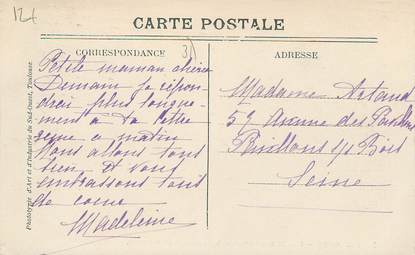 124
CARTE POSTALE
CORRESPONDANCE
3)
ADRESSE
Petite maman chérie
Demain je répon-
drai plus longue-
ment à ta lettre
reçue ce matin
Nous allons tous
bien et vous
embrassons tous
de cœur
Madeleine
Madame Artaud
59 Avenue des Pavillons
Pavillons s/s Bois
Seine
Phototypie d'Art et d'Industrie du Sud-Ouest, Toulouse.